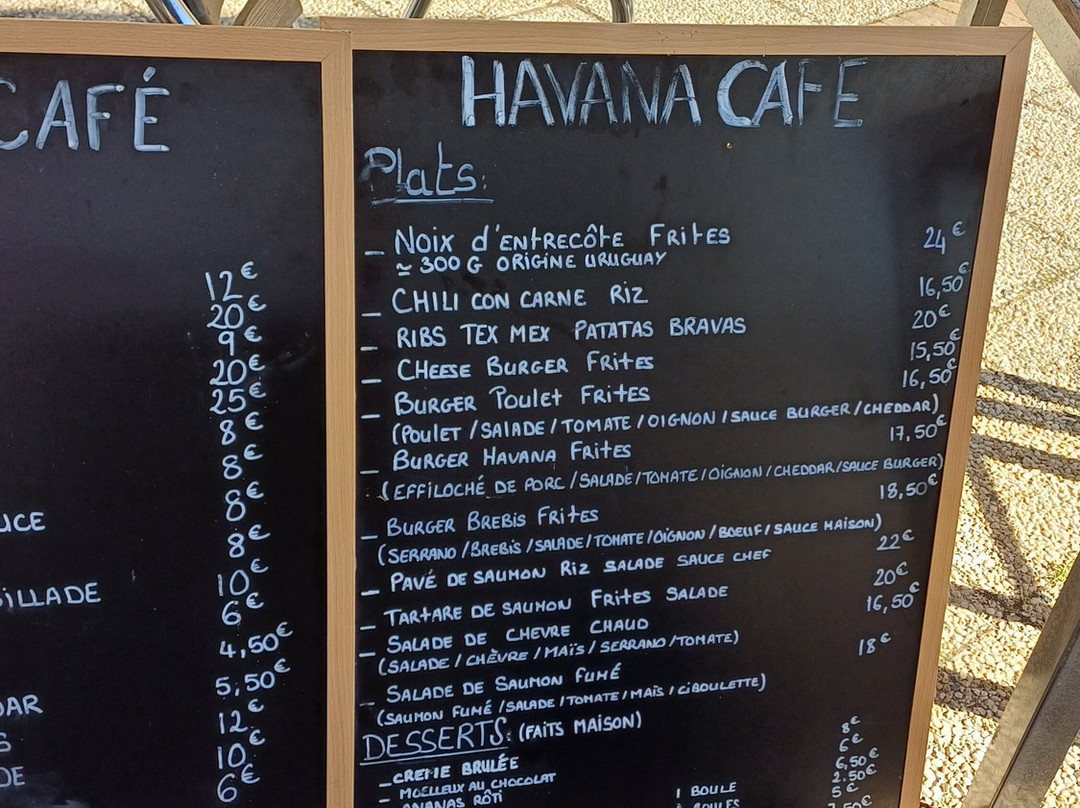 CAFÉ
12€
20€
9€
20€
25€
8€
8€
8€
8€
10€
6€
4,50€
5,50€
12€
10€
6€
HAVANA CAFE
Plats:
_ NOIX d'ENTRECÔTE FRITES 24€
≃ 300 G ORIGINE URUGUAY
_ CHILI CON CARNE RIZ 16,50€
_ RIBS TEX MEX PATATAS BRAVAS 20€
_ CHEESE BURGER FRITES 15,50€
_ BURGER POULET FRITES 16,50€
(POULET / SALADE / TOMATE / OIGNON / SAUCE BURGER / CHEDDAR)
_ BURGER HAVANA FRITES 17,50€
(EFFILOCHÉ DE PORC / SALADE / TOMATE / OIGNON / CHEDDAR / SAUCE BURGER)
_ BURGER BREBIS FRITES 18,50€
(SERRANO / BREBIS / SALADE / TOMATE / OIGNON / BOEUF / SAUCE MAISON)
_ PAVÉ DE SAUMON RIZ SALADE SAUCE CHEF 22€
_ TARTARE DE SAUMON FRITES SALADE 20€
_ SALADE DE CHEVRE CHAUD 16,50€
(SALADE / CHÈVRE / MAÏS / SERRANO / TOMATE)
_ SALADE DE SAUMON FUMÉ 18€
(SAUMON FUMÉ / SALADE / TOMATE / MAÏS / CIBOULETTE)
DESSERTS: (FAITS MAISON)
_ CREME BRULÉE 8€
_ MOELLEUX AU CHOCOLAT 6€
ANANAS RÔTI 6,50€
1 BOULE 2.50€
BOULES 5€